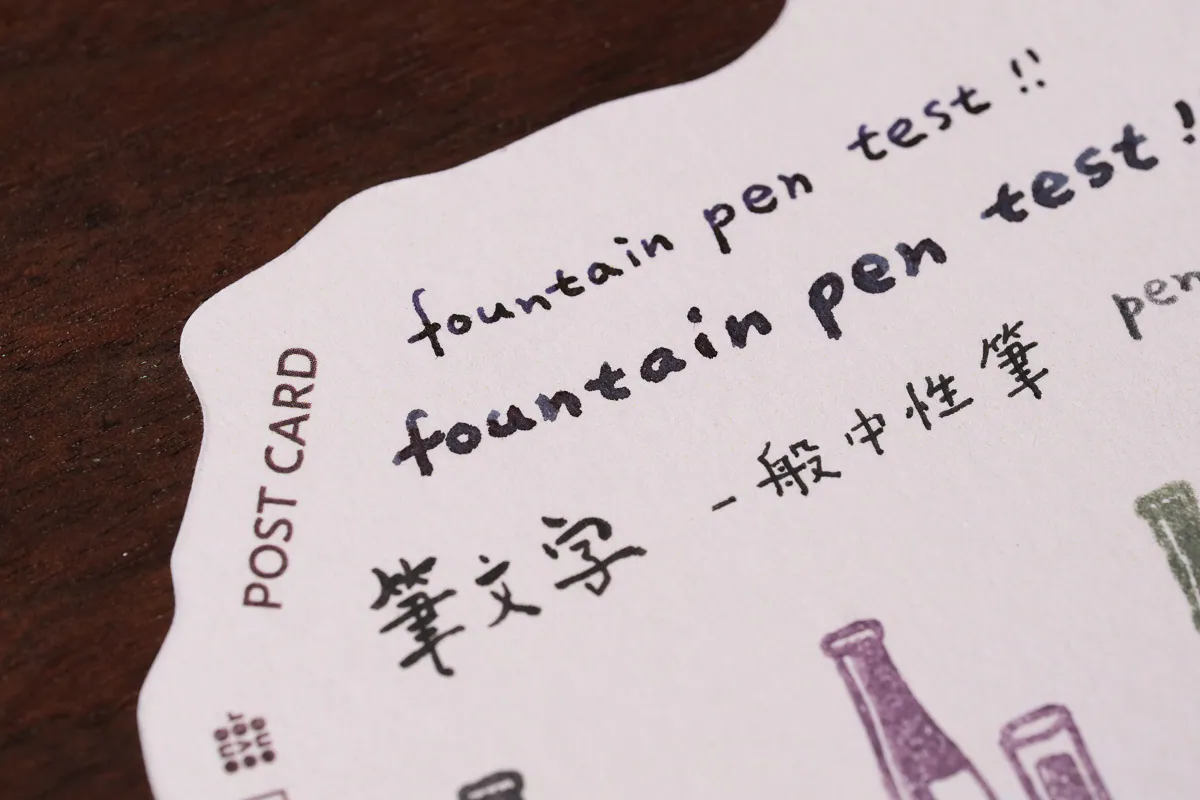 fountain pen test!!
fountain pen test!
pen
一般中性筆
筆文字
POST CARD
one
over
one